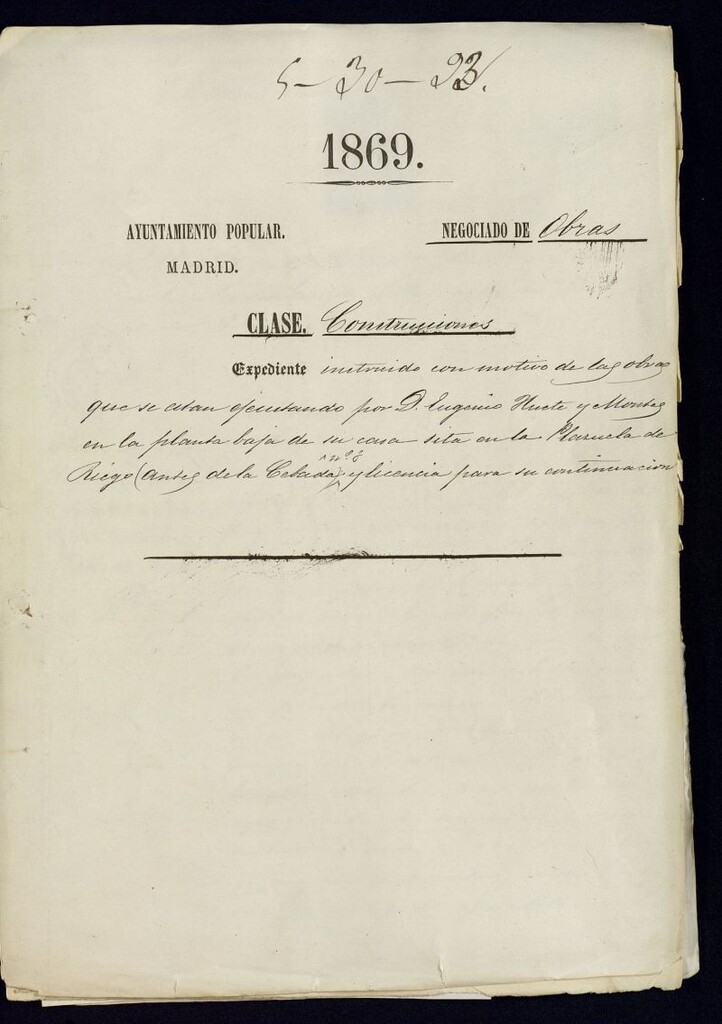 5-30-23.
1869.
AYUNTAMIENTO POPULAR. NEGOCIADO DE Obras
MADRID.
CLASE. Construcciones
Expediente instruido con motivo de las obras
que se estan ejecutando por D. Eugenio Huete y Montes
en la planta baja de su casa sita en la Plazuela de
nº 8
Riego (antes de la Cebada) y licencia para su continuacion